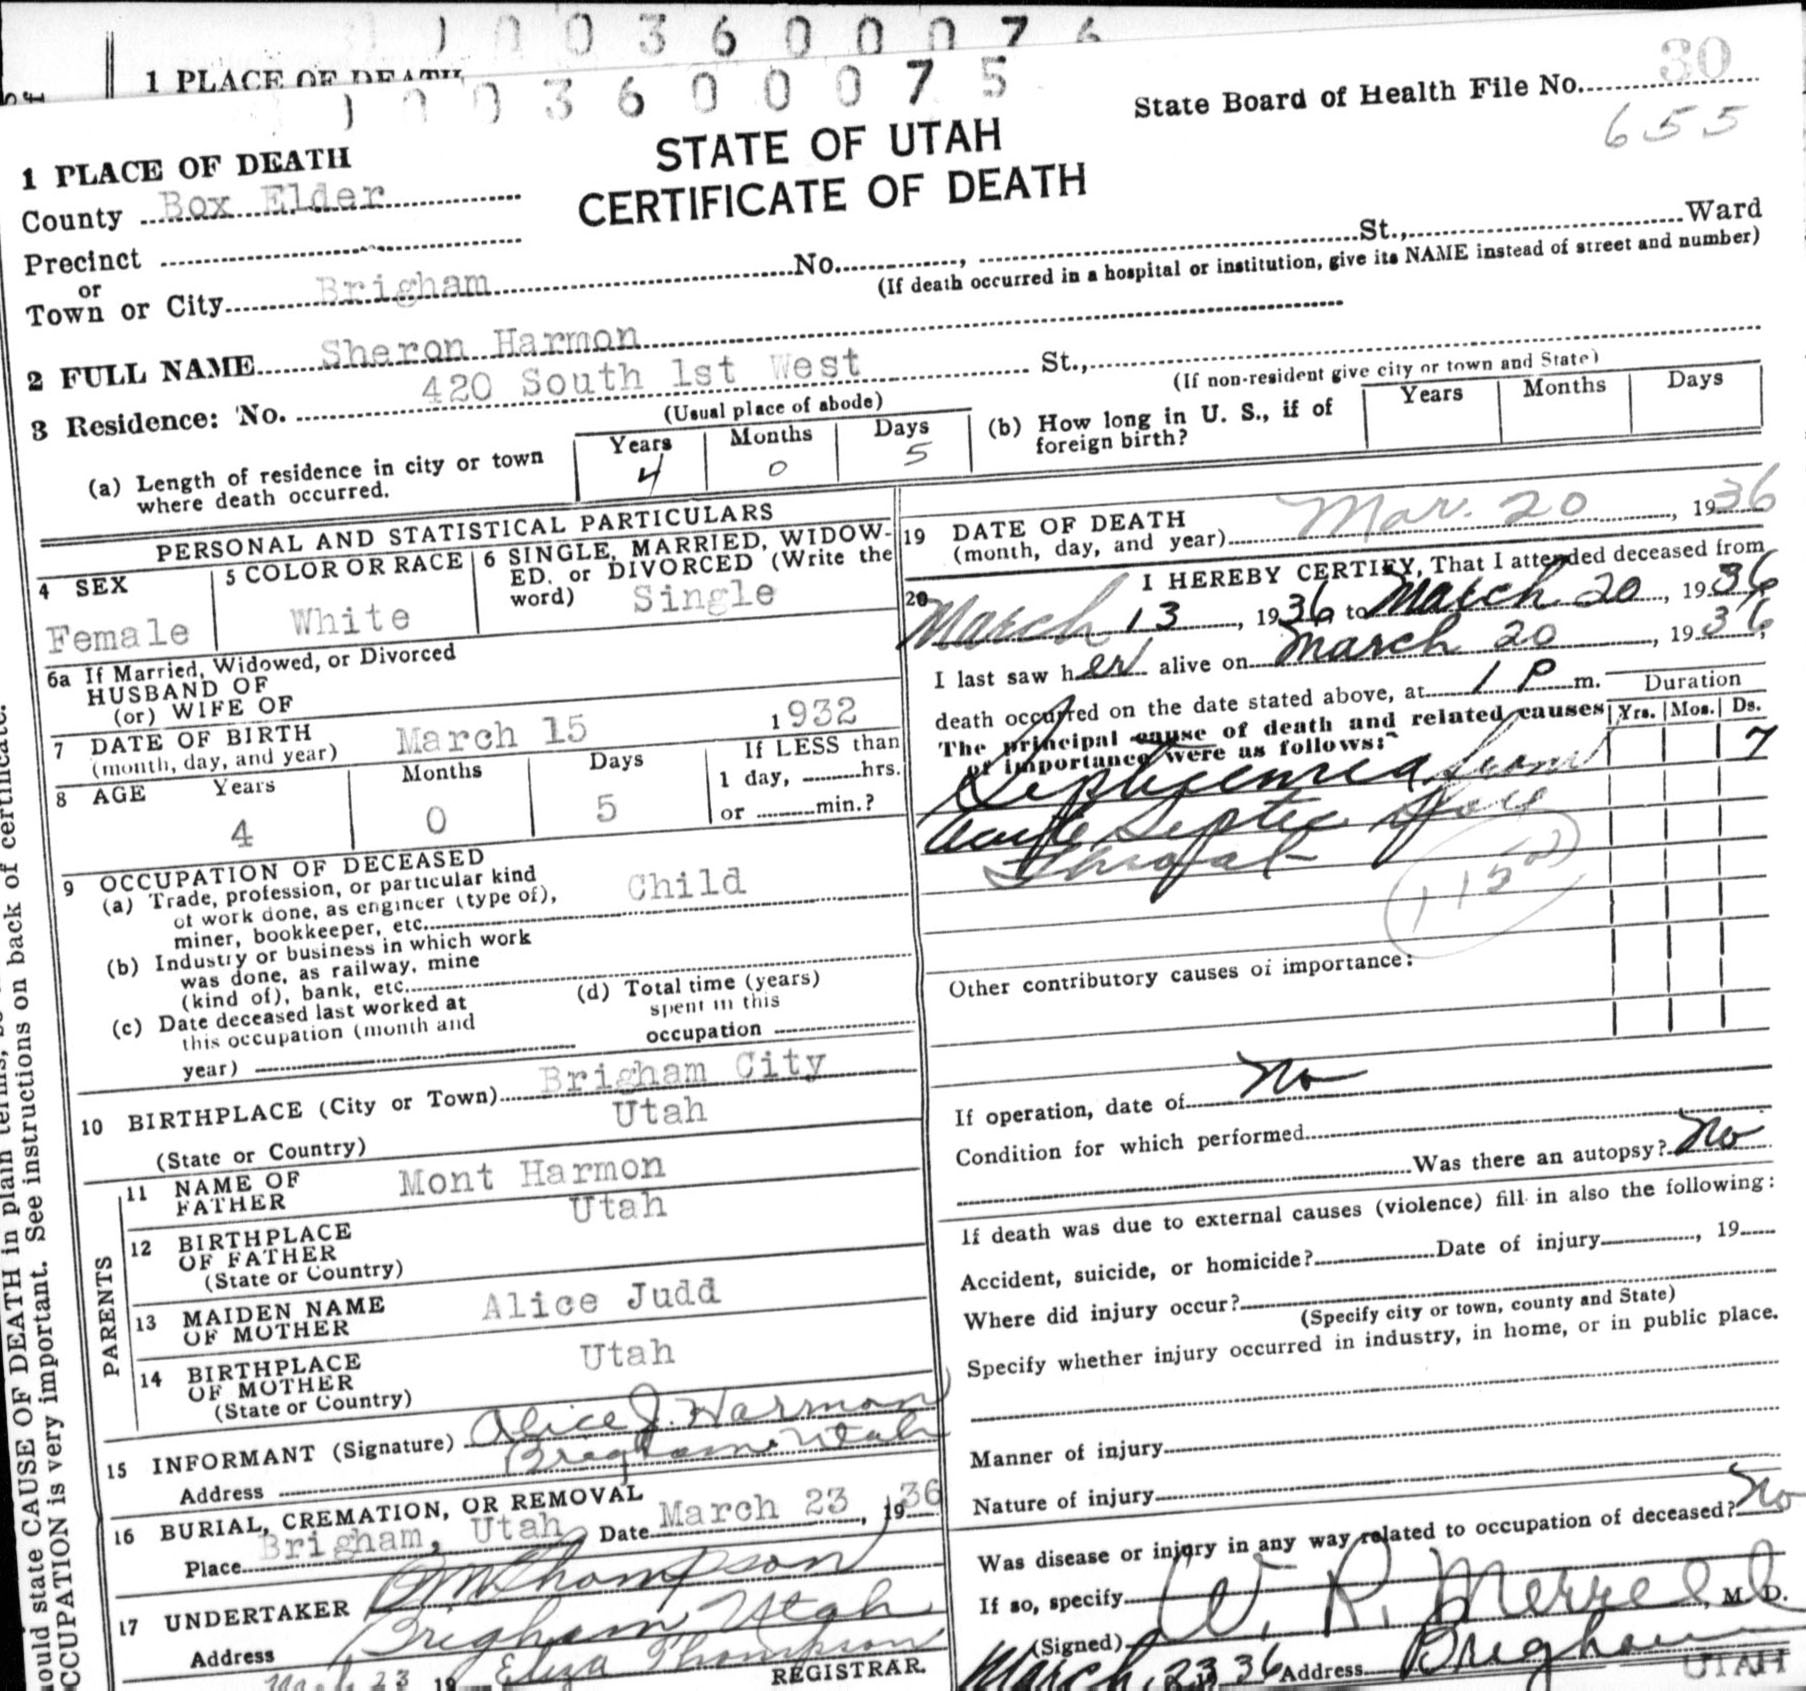 1 0 0 3 6 0 0 0 7 6
1 PLACE OF DEATH
1 0 0 3 6 0 0 0 7 5
State Board of Health File No. 30
655
STATE OF UTAH
CERTIFICATE OF DEATH
1 PLACE OF DEATH
County Box Elder
Precinct
or
Town or City Brigham No. , St., Ward
(If death occurred in a hospital or institution, give its NAME instead of street and number)
2 FULL NAME Sheron Harmon
3 Residence: No. 420 South 1st West St.,
(Usual place of abode) (If non-resident give city or town and State)
(a) Length of residence in city or town where death occurred. Years 4 Months 0 Days 5
(b) How long in U. S., if of foreign birth? Years Months Days
PERSONAL AND STATISTICAL PARTICULARS
4 SEX Female
5 COLOR OR RACE White
6 SINGLE, MARRIED, WIDOWED. or DIVORCED (Write the word) Single
6a If Married, Widowed, or Divorced
HUSBAND OF
(or) WIFE OF
7 DATE OF BIRTH March 15 1932
(month, day, and year)
8 AGE Years 4 Months 0 Days 5
If LESS than
1 day, hrs.
or min.?
9 OCCUPATION OF DECEASED
(a) Trade, profession, or particular kind
of work done, as engineer (type of),
miner, bookkeeper, etc. Child
(b) Industry or business in which work
was done, as railway, mine
(kind of), bank, etc.
(c) Date deceased last worked at
this occupation (month and
year)
(d) Total time (years)
spent in this
occupation
10 BIRTHPLACE (City or Town) Brigham City
(State or Country) Utah
PARENTS
11 NAME OF FATHER Mont Harmon
12 BIRTHPLACE OF FATHER Utah
(State or Country)
13 MAIDEN NAME OF MOTHER Alice Judd
14 BIRTHPLACE OF MOTHER Utah
(State or Country)
15 INFORMANT (Signature) Alice J. Harmon
Address Brigham Utah
16 BURIAL, CREMATION, OR REMOVAL
Place Brigham, Utah Date March 23, 1936
17 UNDERTAKER Thompson
Address Brigham Utah
23 19 Eliza Thompson REGISTRAR.
19 DATE OF DEATH
(month, day, and year) Mar. 20, 1936
20 I HEREBY CERTIFY, That I attended deceased from
March 13, 1936, to March 20, 1936
I last saw her alive on March 20, 1936,
death occurred on the date stated above, at 1 P m.
The principal cause of death and related causes
of importance were as follows:
Duration
Yrs. Mos. Ds.
7
Septicemia from
Acute Septic Sore
Throat
115
Other contributory causes of importance:
If operation, date of No
Condition for which performed
Was there an autopsy? No
If death was due to external causes (violence) fill in also the following:
Accident, suicide, or homicide? Date of injury , 19
Where did injury occur?
(Specify city or town, county and State)
Specify whether injury occurred in industry, in home, or in public place.
Manner of injury
Nature of injury
Was disease or injury in any way related to occupation of deceased? No
If so, specify
(Signed) W. R. Merrell, M. D.
March 23 36 Address Brigham
UTAH
ould state CAUSE OF DEATH in plain terms,
CCUPATION is very important. See instructions on back of certificate.